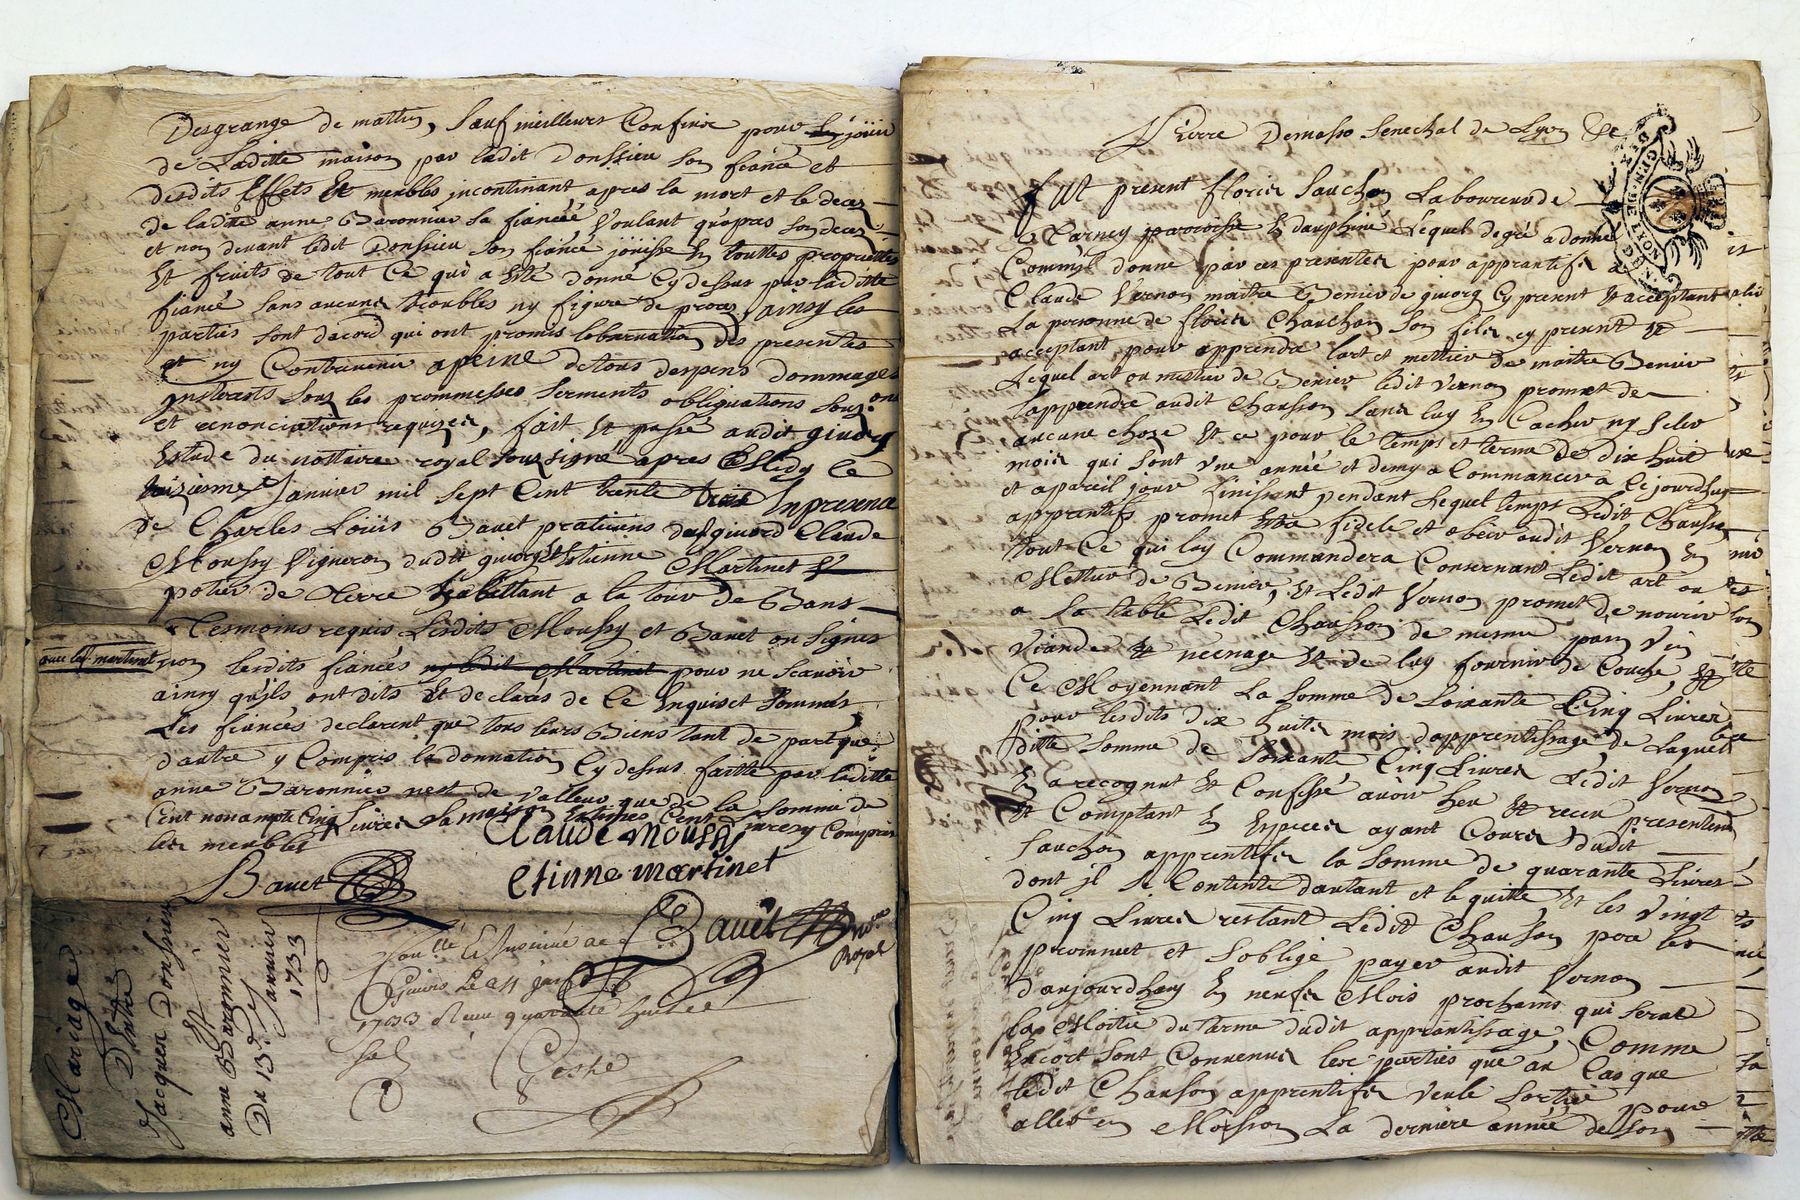 Desgrange de mattin, Sauf meilleurs Confins pour jouir
de Laditte maison par ladit Donssieu son fiancé et
desdits Effets Et meubles incontinant apres la mort et le deces
de ladite anne Baronnier sa fiancée Voulant qu'apres son deces
et non devant ledit Donssieu son fiancé jouisse En touttes proprietés
Et fruits de tout Ce qui a Esté donné Cy dessus par laditte
fiancé sans aucuns troubles ny figure de proces, ainsy les
parties sont dacord qui ont promis lobservation des presentes
et ny Contrevenir a peine de tous despens dommages
Interests sous les prommesses serments obliguations sous
et renonciations requises, fait Et passé audit givors
Estude du nottaire royal soussigné apres Midy le
treizieme Janvier mil sept Cent trente trois In presence
de Charles Loüis Bavet praticiens de givord Claude
Moussy Vigneron dudit givors Et Estienne Martinet
potier de Terre habittant a la tour de Bans
Tesmoins requis Lesdits Moussy et Bavet on Signés
avec led martinet
non lesdits fiancés ny ledit Martinet pour ne scavoir
ainsy qu'ils ont dits Et declarés de Ce Enquis et sommés
Les fiancés declarent que tous leurs Biens tant de part que
d'autre y Compris la donnation Cy dessus faitte par laditte
anne Baronnier nest de Valleur que de la somme de
Cent nonante Cinq Livres La maison Cent Livres y Compris
les meubles
Claude Moussy
Bavet
etinne martinet
Bavet
Royal
Conllé Et Insinué a
Givors Le 24 janv
1733 Receu quarante huit
Goshe
Mariage
Entre
Jacques Donssieu
Et
anne Baronnier
Du 13 Janvier
1733
Pierre Demasso Senechal de Lyon &c
GEN DE LYON
Fut present floris Sauchon Laboureur de
Terney parroisse En dauphiné Lequel de gré a donné
Comm'il donne par ces presentes pour apprantifs a
Claude Vernon maitre Benier de givors Cy present Et acceptant
La personne de floris Chauchon son fils cy present Et
acceptant pour apprendre lart et mettier de maitre Benier
Lequel art ou mettier de Benier ledit Vernon promet de
lapprendre audit Chausson sans luy En Cacher ny Celer
aucune chose Et ce pour le temps et terme de Dix huit
mois qui sont une année et demy a Commancer a Cejourdhuy
et a pareil jour finissent pendant lequel temps Ledit Chausson
apprentifs promet Estre fidele et obeir audit Vernon En
tout Ce qui luy Commandera Consernant Ledit art ou
Mettier de Benier, Et Ledit Vernon promet de nourir
a sa table Ledit Chausson de mesme pain Vin
Viande Et menage Et de luy fournir de Couche, Et
Ce Moyennant La somme de Soixante Cinq Livres
pour lesdits dix huits mois d'apprentissage de Laquelle
ditte somme de soixante Cinq Livres Ledit Vernon
En a recognut Et Confessé avoir heu Et receu presentement
Et Comptant En Especes ayant Cours dudit
Sauchon apprentifs la somme de quarante Livres
dont il se Contente dautant et le quitte Et les Vingt
Cinq Livres restant Ledit Chausson par les
prommet et soblige payer audit Vernon
daujourdhuy En neufs Mois prochains qui seront
Las Moitié du terme dudit apprantissage, Comme
Encort sont Convenus les parties que au Cas que
ledit Chausson apprentifs Veule sortir pour
aller En Moisson La derniere année de son